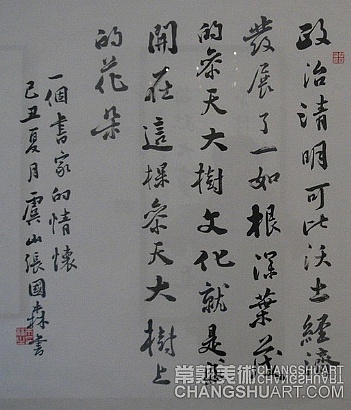 政治清明可比沃土經濟
發展了一如根深葉茂
的参天大樹文化就是盛
開在這棵参天大樹上
的花朵
一個書家的情懷
己丑夏月虞山張國森書
常熟美術
CHANGSHUART.COM